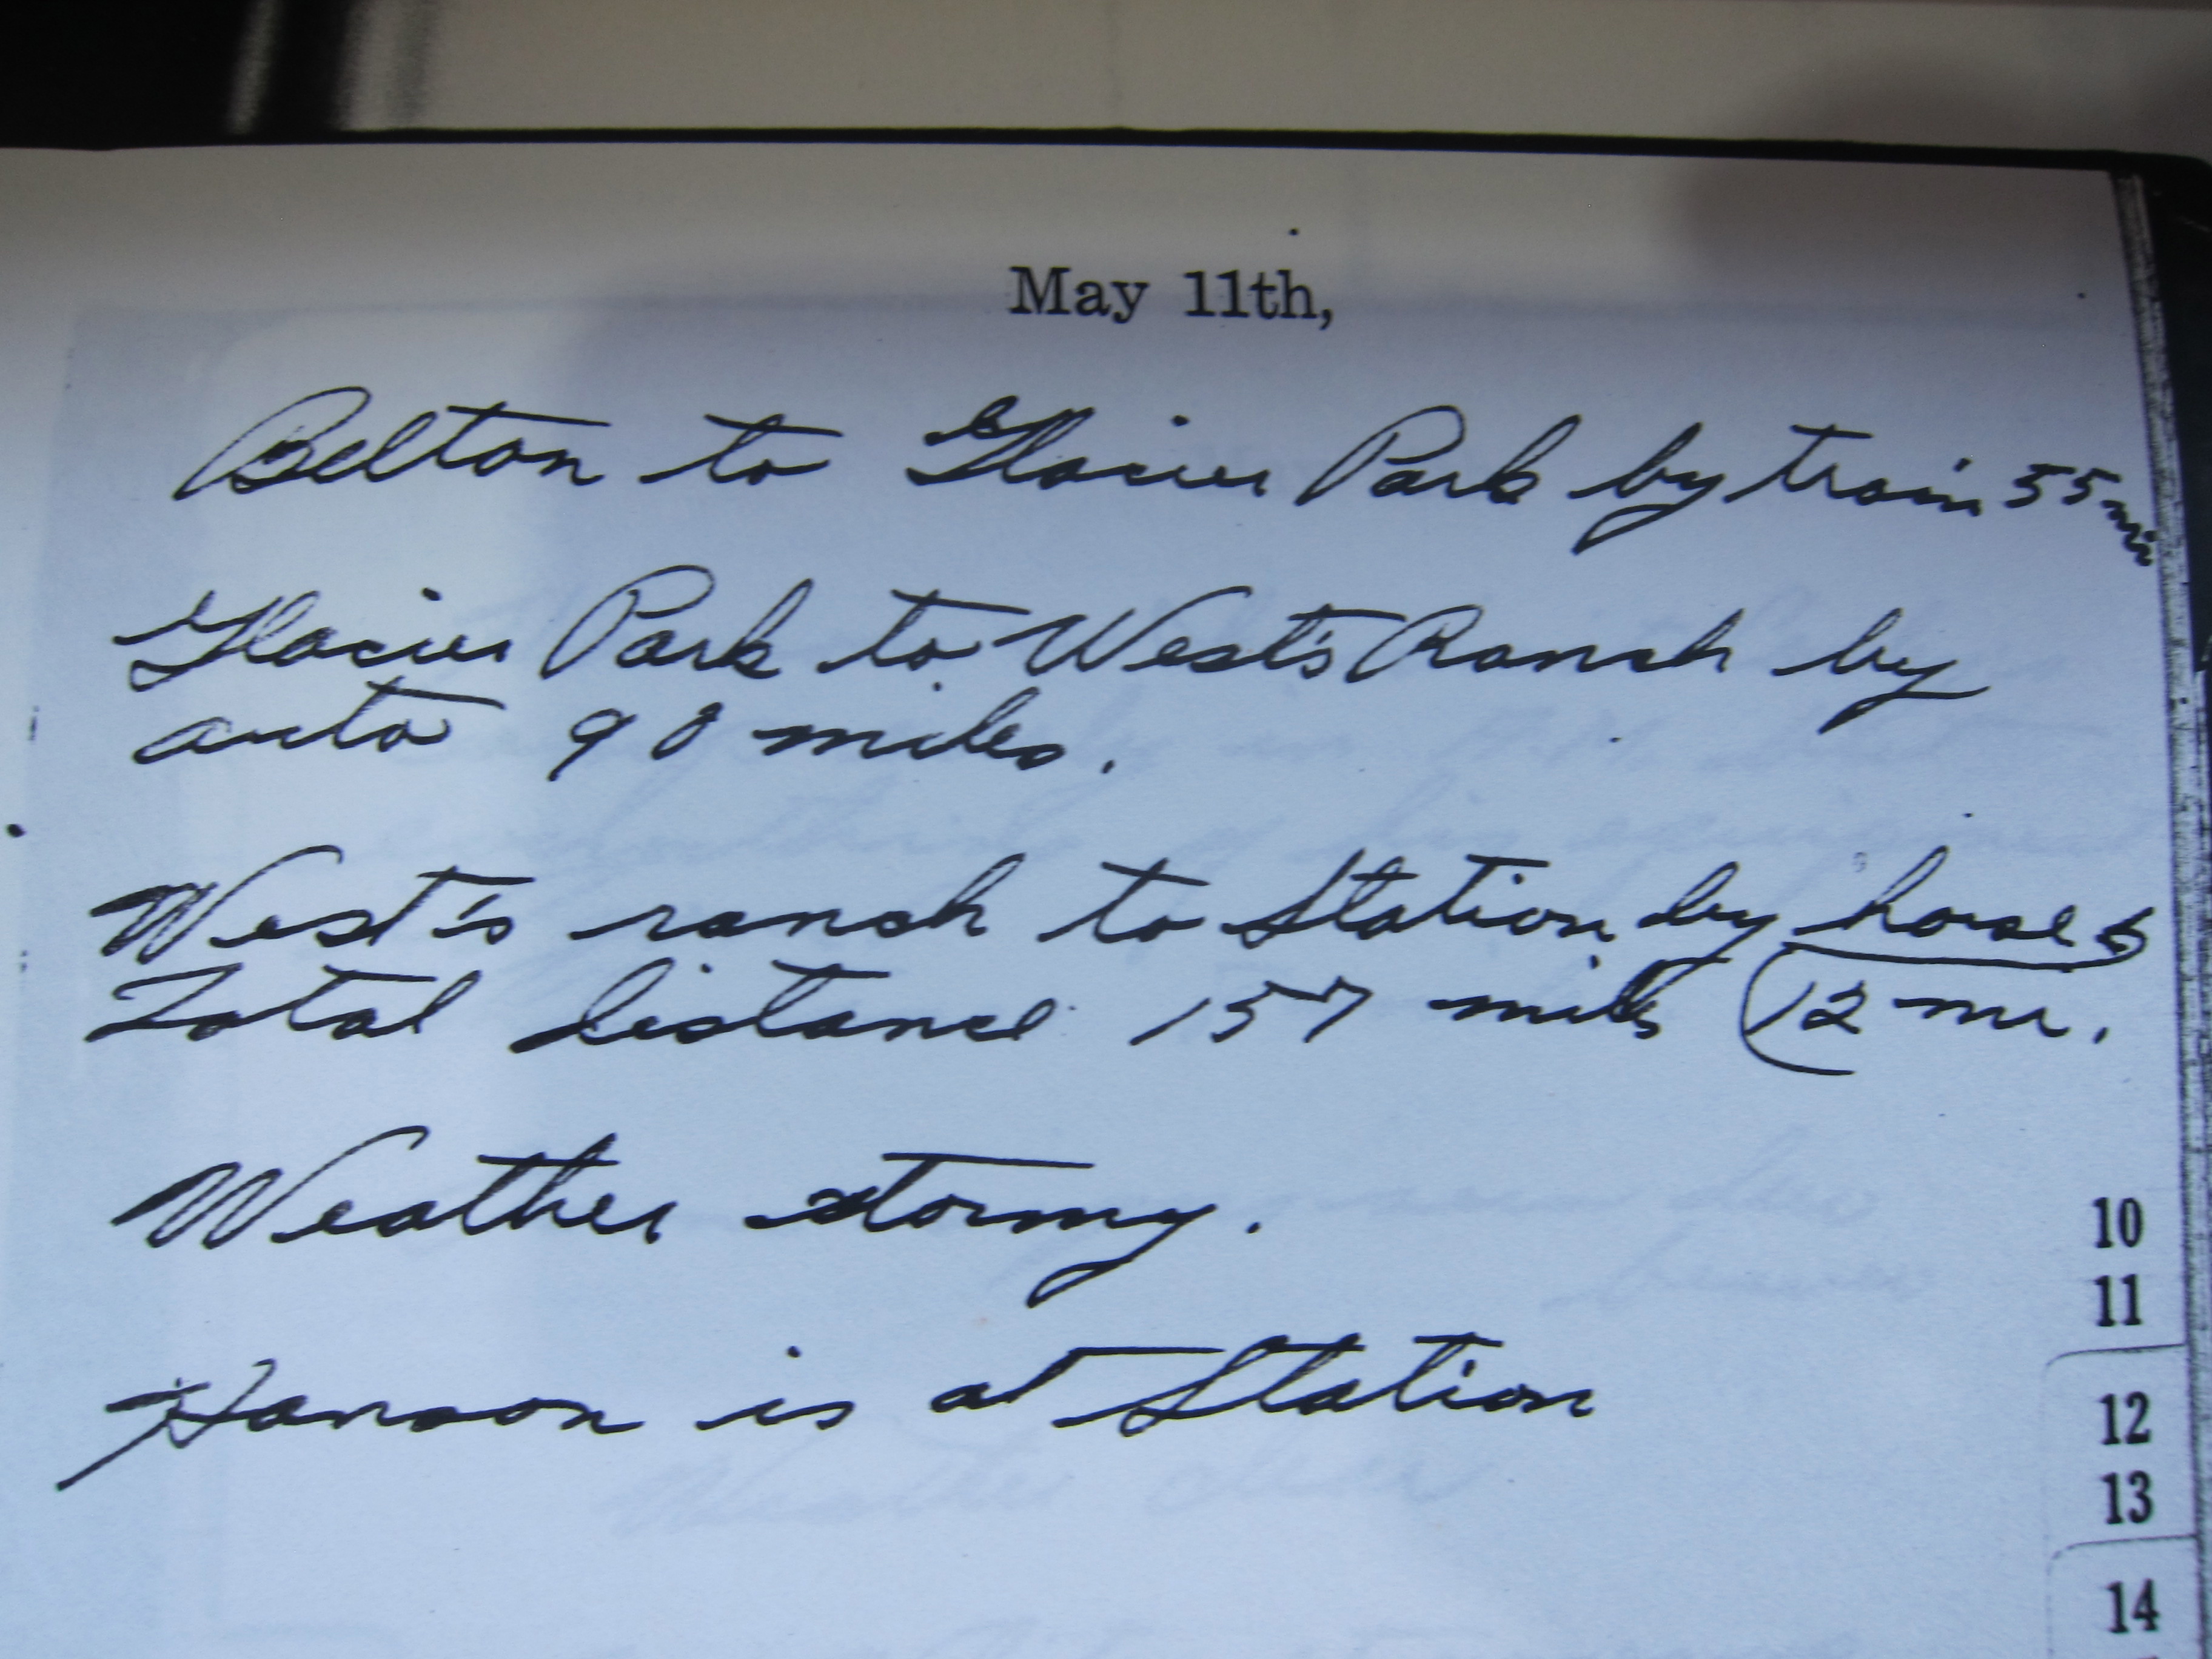 May 11th,
Belton to Glacier Park by train 55 mi
Glacier Park to West's Ranch by
auto 90 miles.
West's ranch to Station by horses
Total distance 157 miles (12 mi.
Weather stormy.
Hanson is at Station
10
11
12
13
14